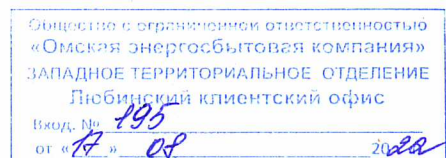 Общество с ограниченной ответственностью
«Омская энергосбытовая компания»
ЗАПАДНОЕ ТЕРРИТОРИАЛЬНОЕ ОТДЕЛЕНИЕ
Любинский клиентский офис
Вход. № 195
от «17» 08 2022